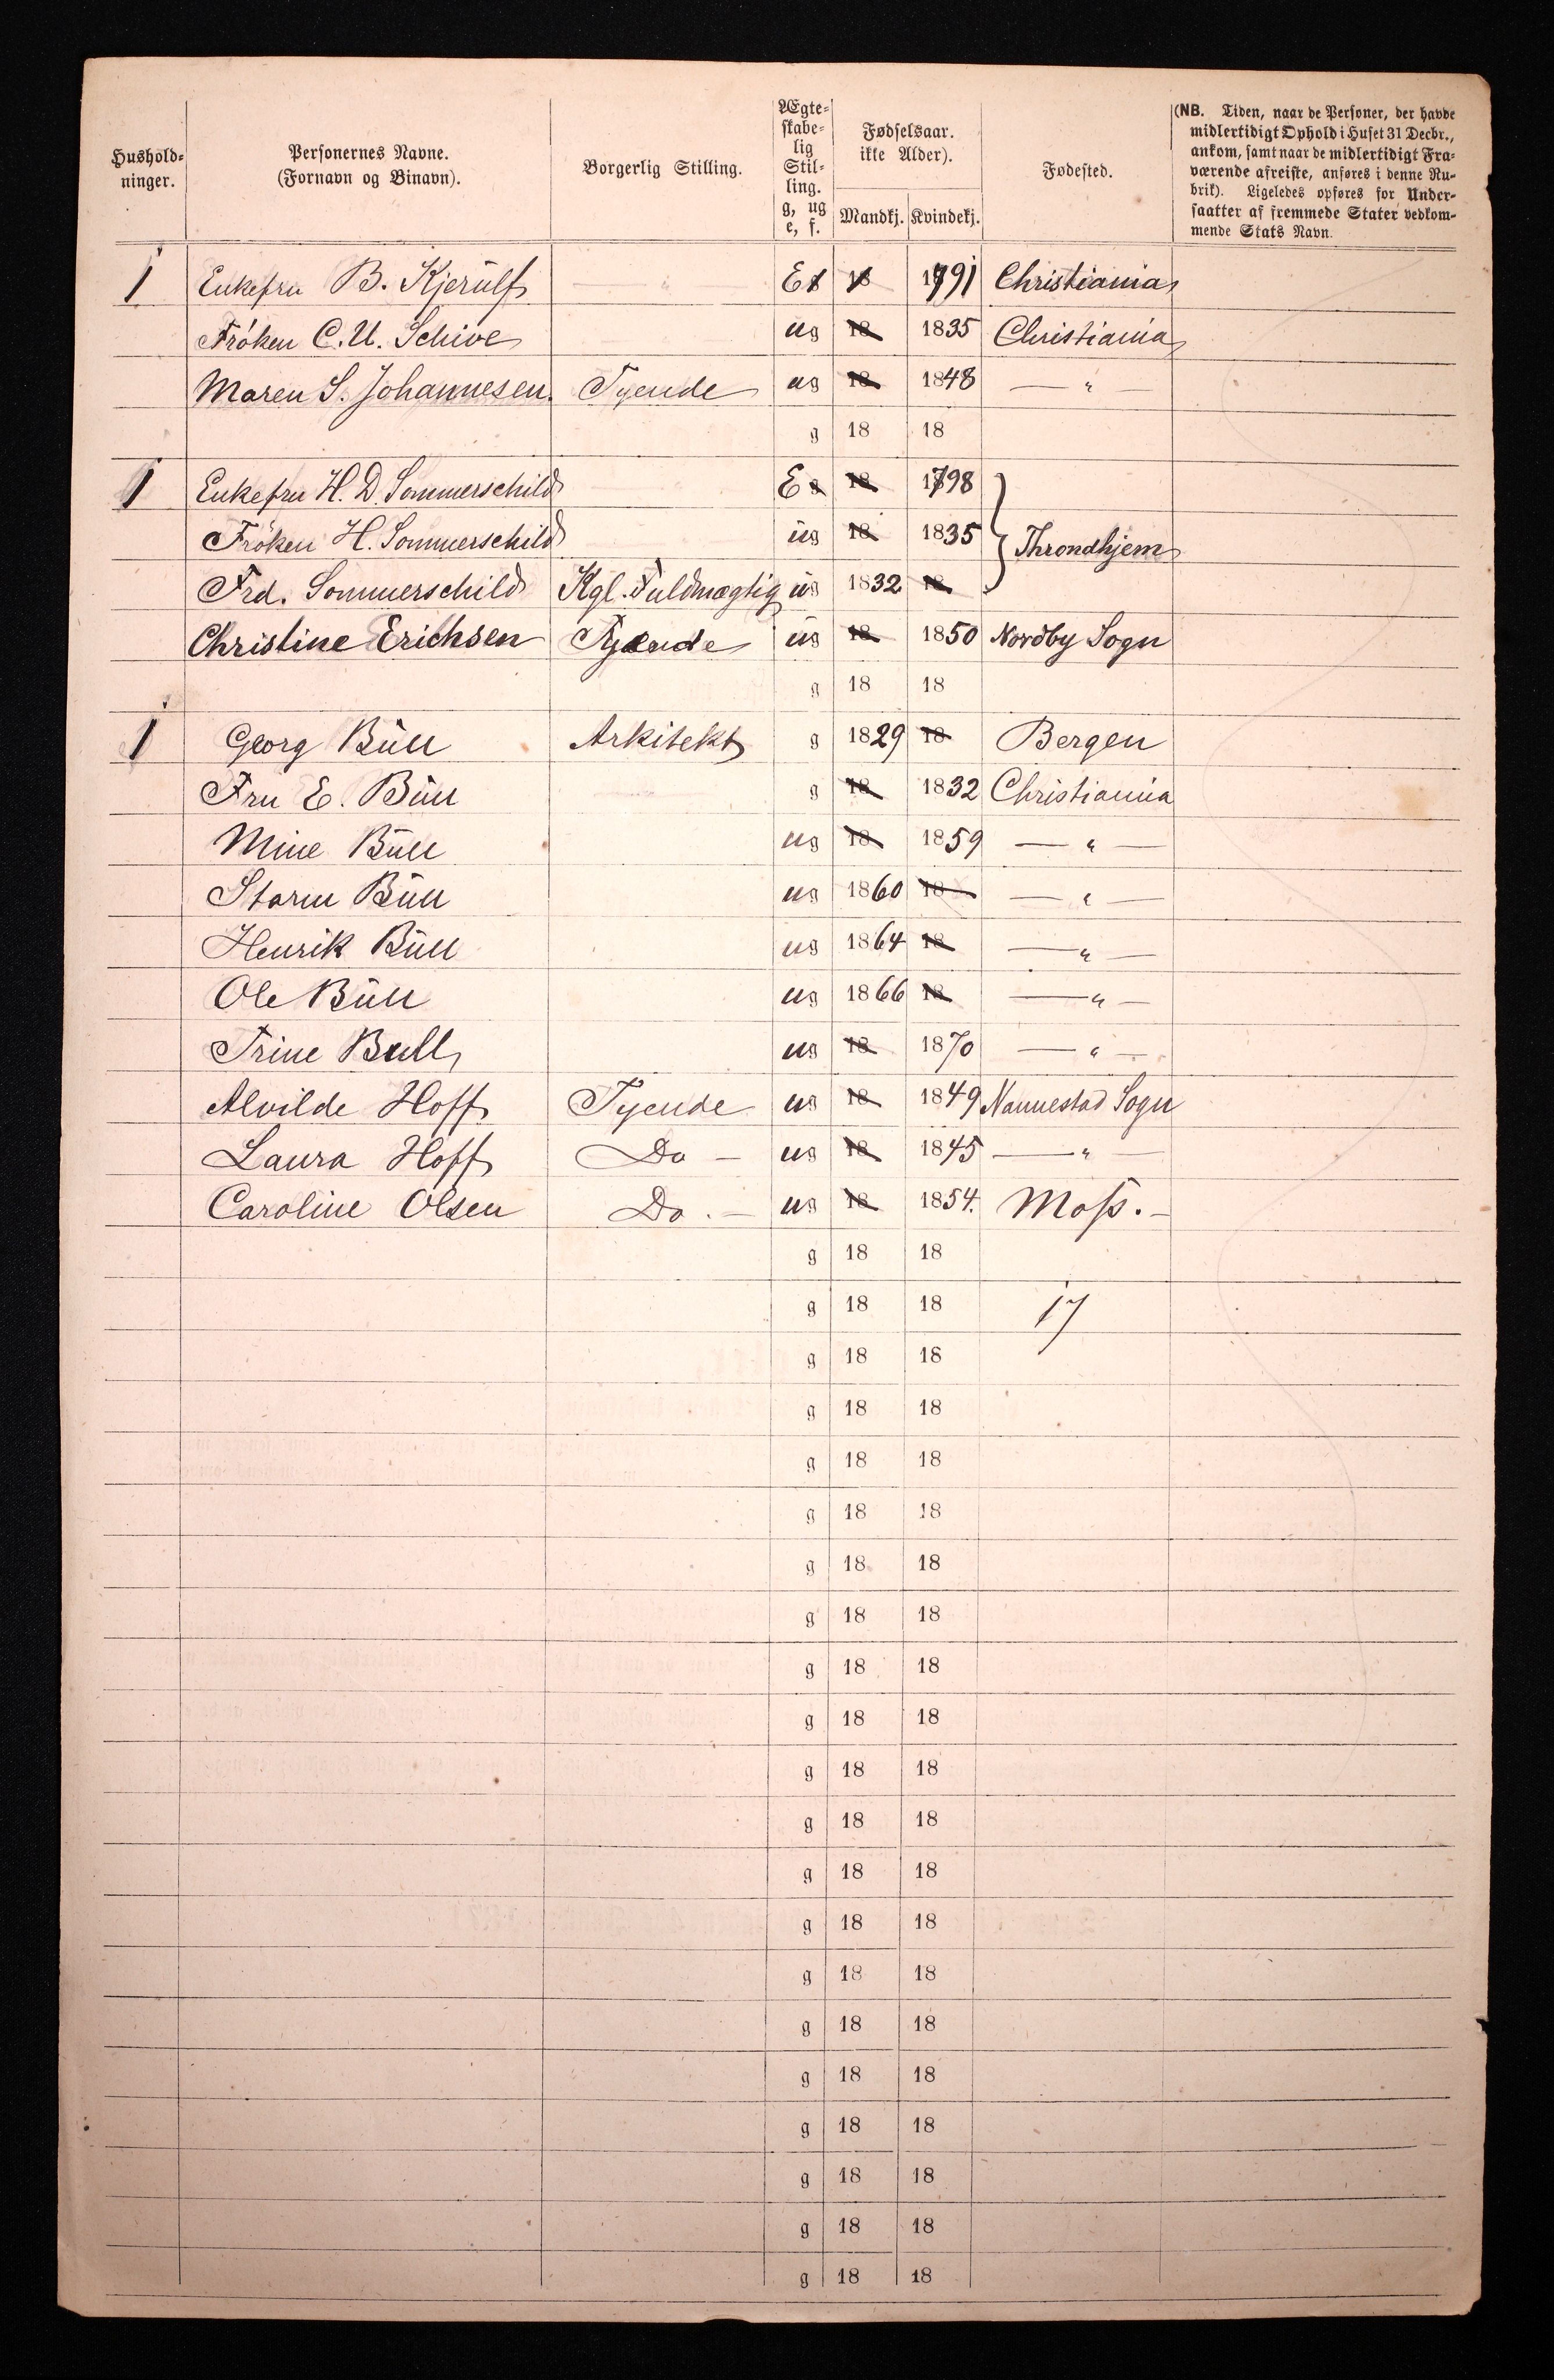 Hushold-
ninger.
Personernes Navne.
(Fornavn og Binavn).
Borgerlig Stilling.
Ægte-
skabe-
lig
Stil-
ling.
g, ug
e, f.
Fødselsaar.
ikke Alder).
Mandkj. Kvindekj.
Fødested.
(NB. Tiden, naar de Personer, der havde
midlertidigt Ophold i Huset 31 Decbr.,
ankom, samt naar de midlertidigt Fra-
værende afreiste, anføres i denne Ru-
brik). Ligeledes opføres for Under-
saatter af fremmede Stater vedkom-
mende Stats Navn.
1 Enkefru B. Kjerülf — " E 1791 Christiania
Fröken C. U. Schive ug 18 1835 Christiania
Maren S. Johannesen. Tyende ug 18 1848 — " —
g 18 18
1 Enkefru H. D. Sommerschild E g 18 1798
Fröken H. Sommerschild ug 18 1835 } Throndhjem
Frd. Sommerschild Kgl. Fuldmægtig ug 1832 18
Christine Erichsen Tjende ug 18 1850 Nordby Sogn
g 18 18
1 Georg Büll Arkitekt g 1829 18 Bergen
Fru E. Büll g 18 1832 Christiania
Mine Büll ug 18 1859 — " —
Storm Büll ug 1860 18 — " —
Henrik Büll ug 1864 18 — " —
Ole Büll ug 1866 18 — " —
Trine Bull ug 18 1870 — " —
Alvilde Hoff Tyende ug 18 1849 Nannestad Sogn
Laura Hoff Do — ug 18 1845 — " —
Caroline Olsen Do. — ug 18 1854. Moss. —
g 18 18
g 18 18 17
g 18 18
g 18 18
g 18 18
g 18 18
g 18 18
g 18 18
g 18 18
g 18 18
g 18 18
g 18 18
g 18 18
g 18 18
g 18 18
g 18 18
g 18 18
g 18 18
g 18 18
g 18 18
g 18 18